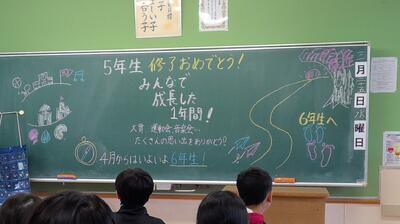 子
しい子
合う子
5年生 修了おめでとう!
みんなで
成長した
1年間!
6年生へ
たくさんの思い出をありがとう!!
4月からはいよいよ6年生!
月
日
曜
日